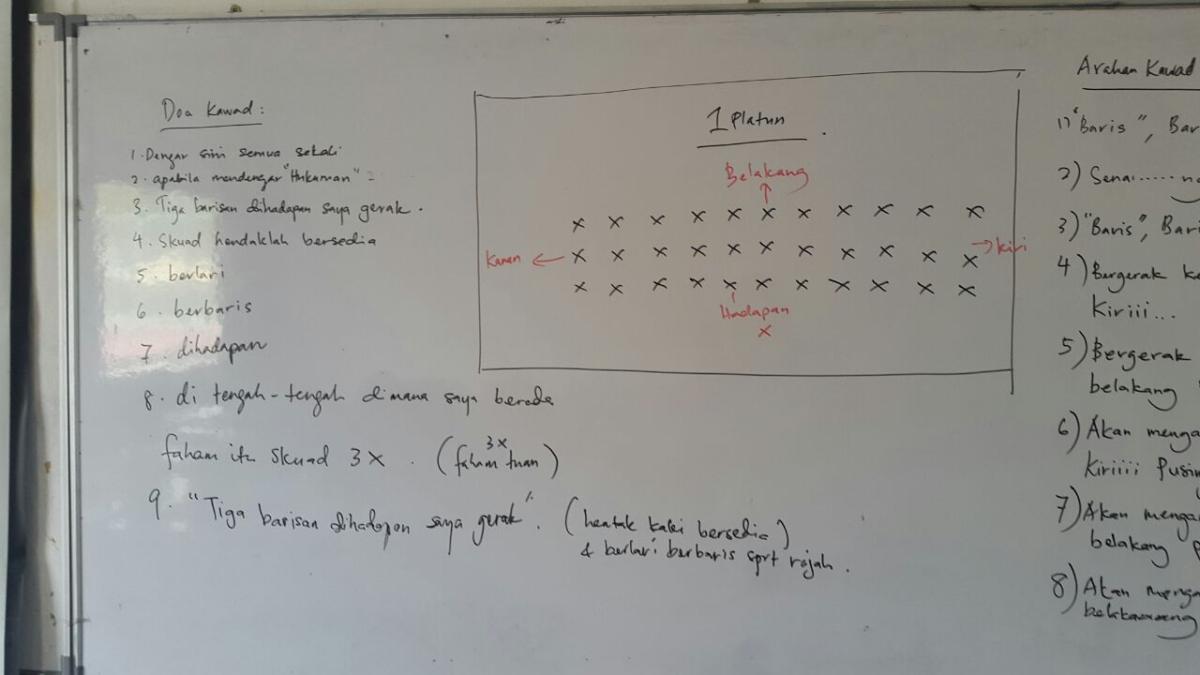 Doa Kawad :
1. Dengar sini semua sekali
2. apabila mendengar "Hukuman" =
3. Tiga barisan dihadapan saya gerak.
4. Skuad hendaklah bersedia
5. berlari
6. berbaris
7. dihadapan
8. di tengah-tengah dimana saya berada
faham itu skuad 3x. (faham tuan) 3x
9. "Tiga barisan dihadapan saya gerak". (hentak kaki bersedia)
& berlari berbaris sprt rajah.
1 Platun.
Belakang
Kanan
Kiri
Hadapan
Arahan Kawad
1) "Baris", Bar
2) Senai.....
3) "Baris", Bari
4) Bergerak
Kiriii...
5) Bergerak
belakang
6) Akan menga
Kiriiii Pusin
7) Akan mengar
belakang
8) Akan menga